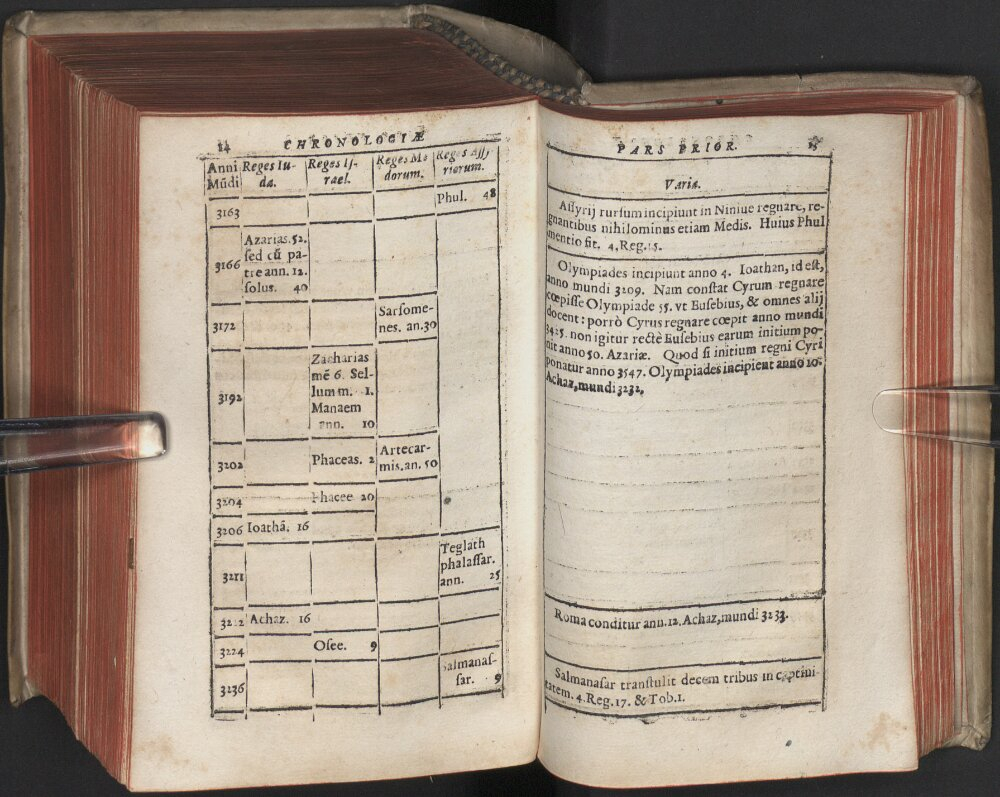 14 CHRONOLOGIÆ
Anni Mũdi
Reges Iu-
da.
Reges Is-
rael.
Reges Me
dorum.
Reges Assy
riorum.
3163
Phul. 48
3166
Azarias. 52.
sed cũ pa-
tre ann. 12.
solus. 40
3172
Sarsome-
nes. an. 30
3192
Zacharias
mẽ 6. Sel-
lum m. 1.
Manaem
ann. 10
3202
Phaceas. 2
Artecar-
mis. an. 50
3204
Phacee 20
3206 Ioathã. 16
3211
Teglath
phalassar.
ann. 25
3212 Achaz. 16
3224
Osee. 9
3236
Salmanas-
sar. 9
PARS PRIOR. 15
Varia.
Assyrij rursum incipiunt in Niniue regnare, re-
gnantibus nihilominus etiam Medis. Huius Phul
mentio fit. 4. Reg. 15.
Olympiades incipiunt anno 4. Ioathan, id est,
anno mundi 3209. Nam constat Cyrum regnare
cœpisse Olympiade 55. vt Eusebius, & omnes alij
docent: porrò Cyrus regnare cœpit anno mundi
3425. non igitur rectè Eusebius earum initium po-
nit anno 50. Azariæ. Quod si initium regni Cyri
ponatur anno 3547. Olympiades incipient anno 10.
Achaz, mundi 3232.
Roma conditur ann. 12. Achaz, mundi 3233.
Salmanasar transtulit decem tribus in captiui-
tatem. 4. Reg. 17. & Tob. 1.